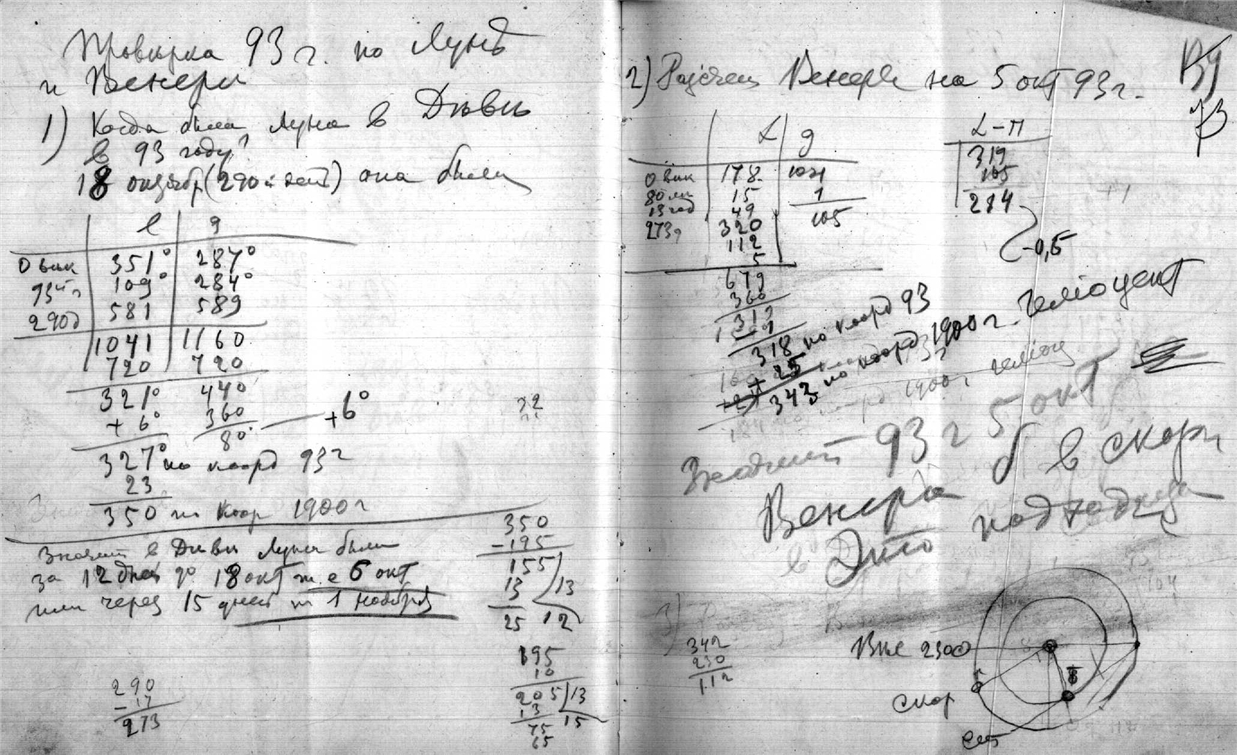 Проверка 93 г. по Луне
и Венере
1) Когда была Луна в Деве
в 93 году?
18 октября (290 день) она была
l g
0 век 351° 287°
93 г 109° 284°
290д 581 589
1041 1160
720 720
321° 440
+ 6° 360
80° +6°
327° по коорд 93 г
23
350 по коор 1900 г
Значит в Деве Луна была
за 12 дней до 18 окт т.е 6 окт
или через 15 дней т 1 ноября
350
-195
155
13 13
25 12
195
10
205 13
13 15
75
65
290
-17
273
2) Расчет Венеры на 5 окт 93 г.
L g
0 век 178 104
80 лет 15 1
13 год 49 105
273д 320
112
5
679
360
319
318 по коорд 93
+ 25
343 по коорд 1900 г. гелиоцент
L-П
319
105
214
-0,5
Значит 93 г 5 окт
Венера б в скорп
Это подходит
3)
342
230
112
Вне 230°
Скор